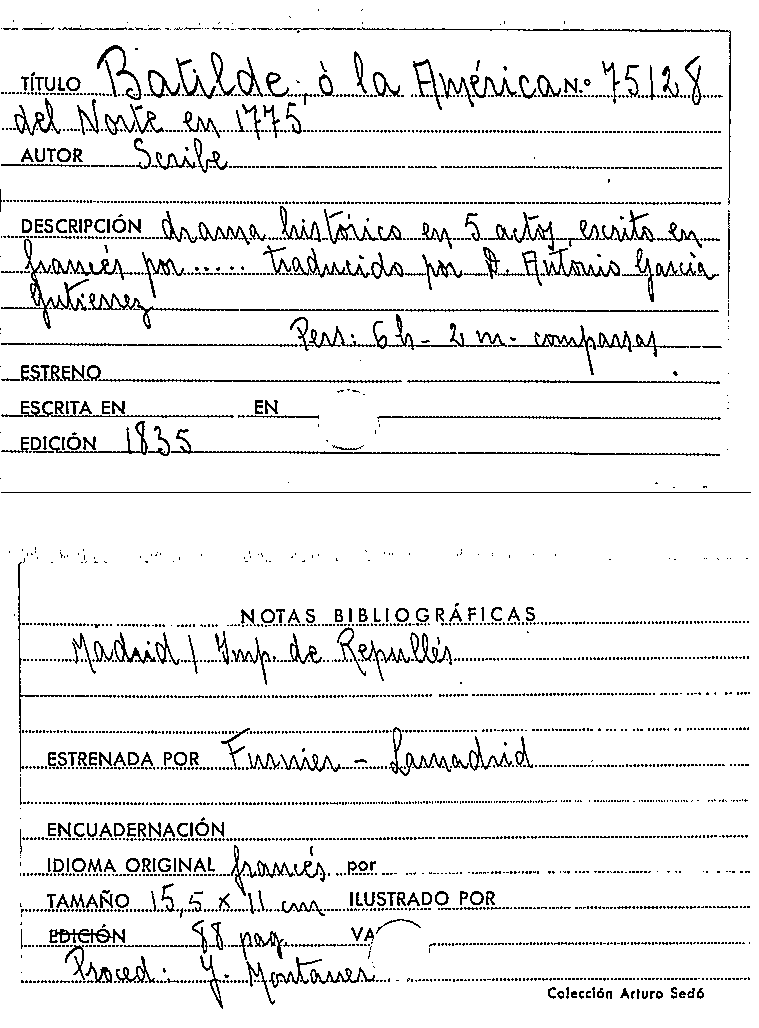 TÍTULO Batilde, ó la América N.º 75128
del Norte en 1775
AUTOR Scribe
DESCRIPCIÓN drama histórico en 5 actos, escrito en
francés por ..... traducido por D. Antonio García
Gutierrez
Pers: 6 h - 2 m - comparsas
ESTRENO
ESCRITA EN EN
EDICIÓN 1835
NOTAS BIBLIOGRÁFICAS
Madrid / Imp. de Repullés
ESTRENADA POR Furnier - Lamadrid
ENCUADERNACIÓN
IDIOMA ORIGINAL francés por
TAMAÑO 15,5 x 11 cm ILUSTRADO POR
EDICIÓN 88 pag. VA
Proced: J. Montaner
Colección Arturo Sedó